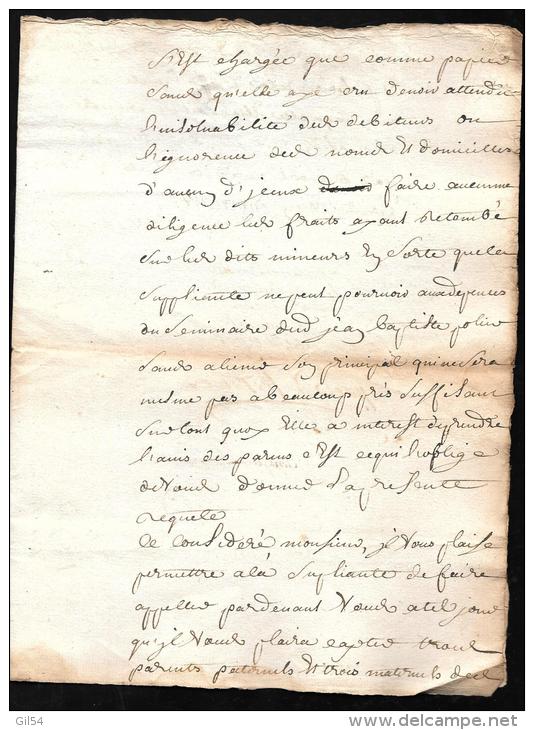 s'Est chargée que comme papier
sans qu'elle aye cru devoir attendu
l'insolvabilité des debiteurs ou
l'ignorence des noms Et domicilles
d'aucun d'jceux faire aucunne
diligence les fraits ayant retombé
sur les dits mineurs En sorte que la
suppliante ne peut pourvoir aux depences
du seminaire dud jean baptiste
sans aliener son principal qui ne sera
mesme pas a beaucoup prés suffisant
sur tout quoy Elle a interest de prendre
l'avis des parens c'Est ce qui l'oblige
de vous donner la presente
requete
Ce consideré monsieur, jl vous plaise
permettre a la supliante de faire
appeller pardevant vous a tel jour
qu'jl vous plaira trois
parents paternels Et trois maternels des
Gil54
delcampe.net